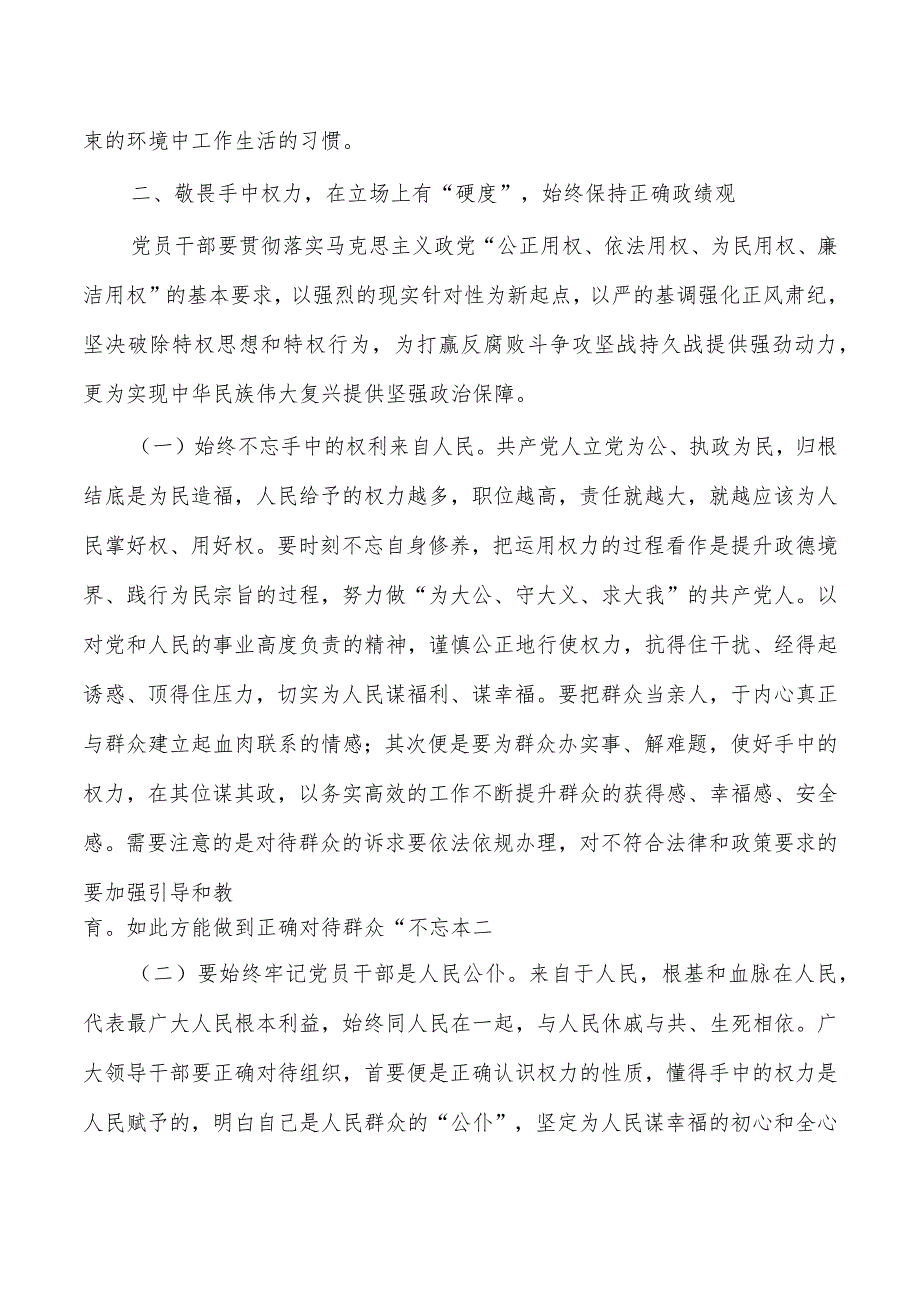 束的环境中工作生活的习惯。
二、敬畏手中权力，在立场上有“硬度”，始终保持正确政绩观
党员干部要贯彻落实马克思主义政党“公正用权、依法用权、为民用权、廉
洁用权”的基本要求，以强烈的现实针对性为新起点，以严的基调强化正风肃纪，
坚决破除特权思想和特权行为，为打赢反腐败斗争攻坚战持久战提供强劲动力，
更为实现中华民族伟大复兴提供坚强政治保障。
（一）始终不忘手中的权利来自人民。共产党人立党为公、执政为民，归根
结底是为民造福，人民给予的权力越多，职位越高，责任就越大，就越应该为人
民掌好权、用好权。要时刻不忘自身修养，把运用权力的过程看作是提升政德境
界、践行为民宗旨的过程，努力做“为大公、守大义、求大我”的共产党人。以
对党和人民的事业高度负责的精神，谨慎公正地行使权力，抗得住干扰、经得起
诱惑、顶得住压力，切实为人民谋福利、谋幸福。要把群众当亲人，于内心真正
与群众建立起血肉联系的情感；其次便是要为群众办实事、解难题，使好手中的
权力，在其位谋其政，以务实高效的工作不断提升群众的获得感、幸福感、安全
感。需要注意的是对待群众的诉求要依法依规办理，对不符合法律和政策要求的
要加强引导和教
育。如此方能做到正确对待群众“不忘本二
（二）要始终牢记党员干部是人民公仆。来自于人民，根基和血脉在人民，
代表最广大人民根本利益，始终同人民在一起，与人民休戚与共、生死相依。广
大领导干部要正确对待组织，首要便是正确认识权力的性质，懂得手中的权力是
人民赋予的，明白自己是人民群众的“公仆”，坚定为人民谋幸福的初心和全心